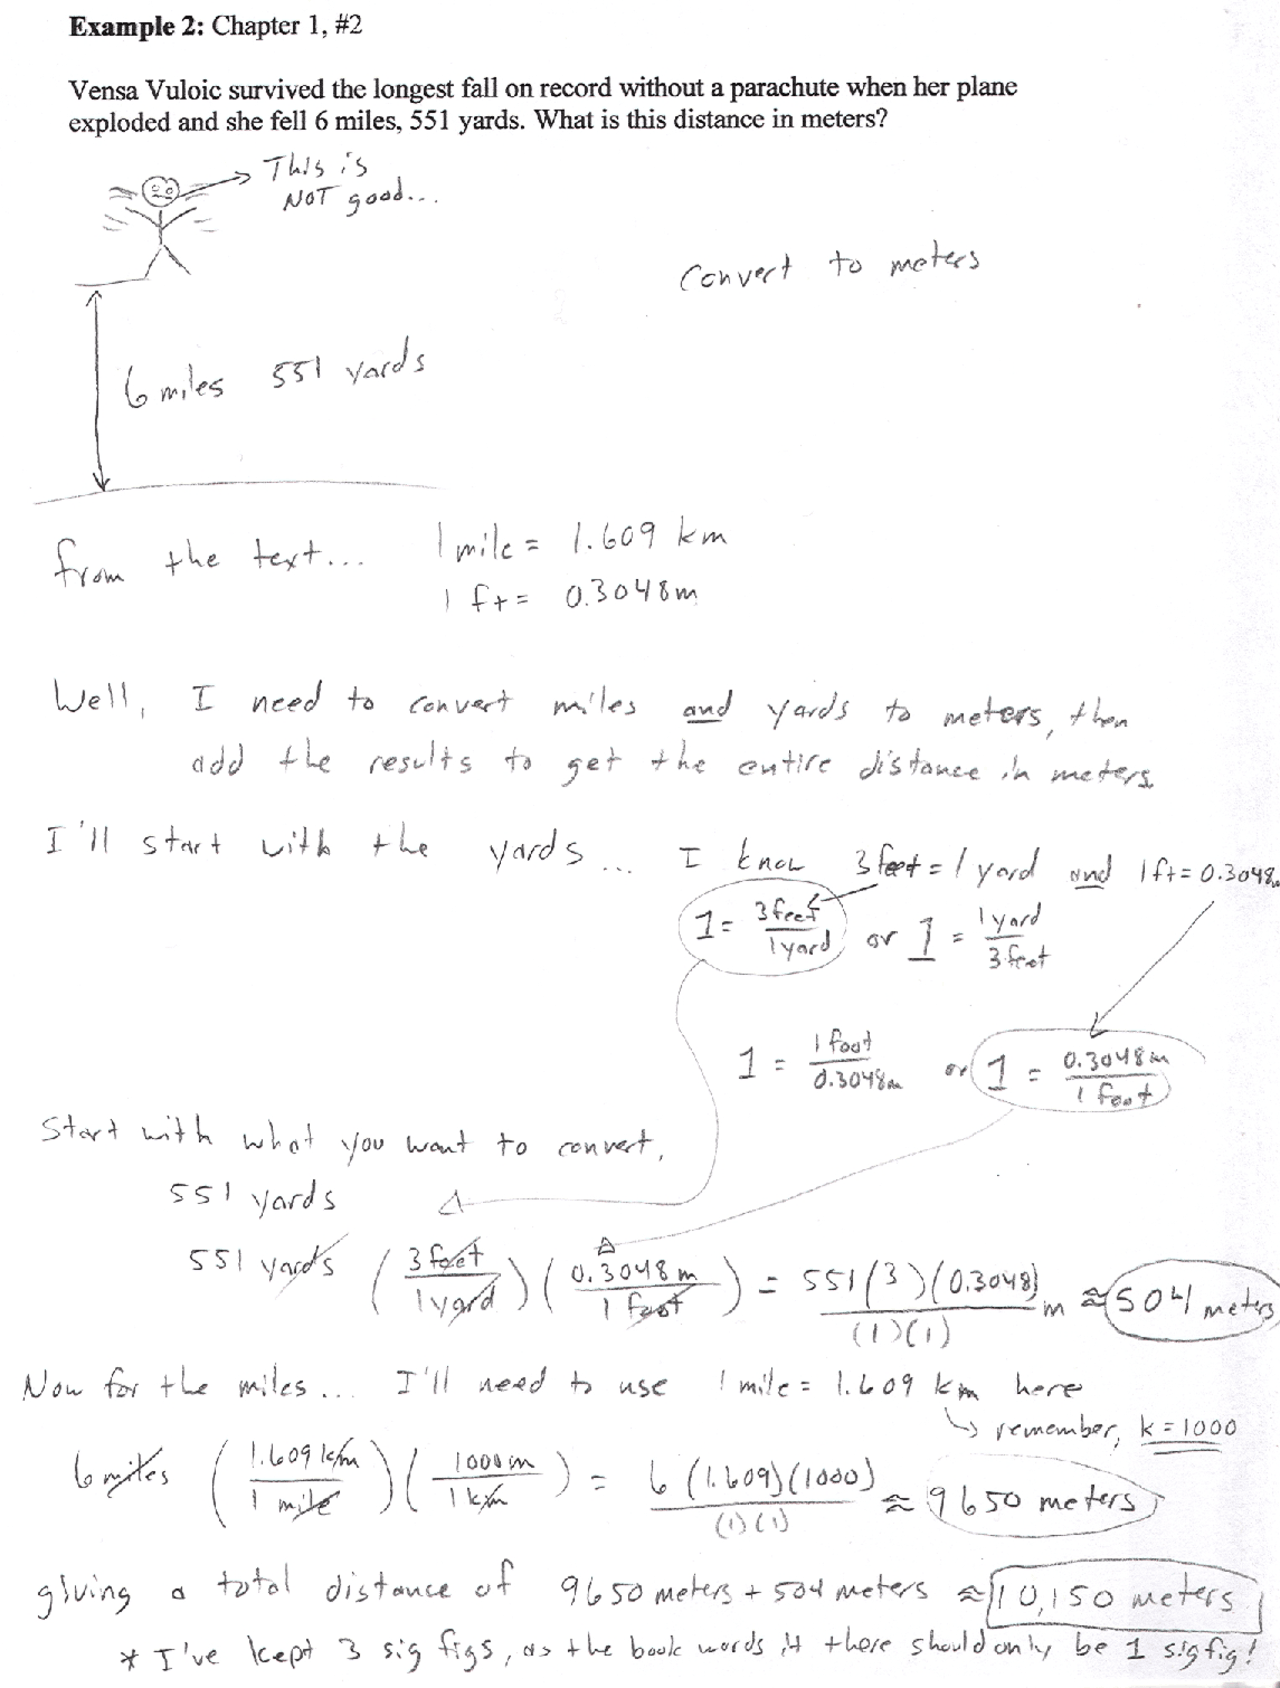 Example 2: Chapter 1, #2
Vensa Vuloic survived the longest fall on record without a parachute when her plane
exploded and she fell 6 miles, 551 yards. What is this distance in meters?
This is
NOT good...
Convert to meters
6 miles 551 yards
from the text... 1 mile = 1.609 km
1 ft = 0.3048m
Well, I need to convert miles and yards to meters, then
add the results to get the entire distance in meters.
I'll start with the yards... I know 3 feet = 1 yard and 1 ft = 0.3048m
1 = 3 feet / 1 yard or 1 = 1 yard / 3 feet
1 = 1 foot / 0.3048m or 1 = 0.3048m / 1 foot
Start with what you want to convert,
551 yards
551 yards (3 feet / 1 yard) (0.3048 m / 1 foot) = 551(3)(0.3048) / (1)(1) m ≈ 504 meters
Now for the miles... I'll need to use 1 mile = 1.609 km here
remember, k = 1000
6 miles (1.609 km / 1 mile) (1000 m / 1 km) = 6 (1.609)(1000) / (1)(1) ≈ 9650 meters
giving a total distance of 9650 meters + 504 meters ≈ 10,150 meters
* I've kept 3 sig figs, as the book words it there should only be 1 sig fig!